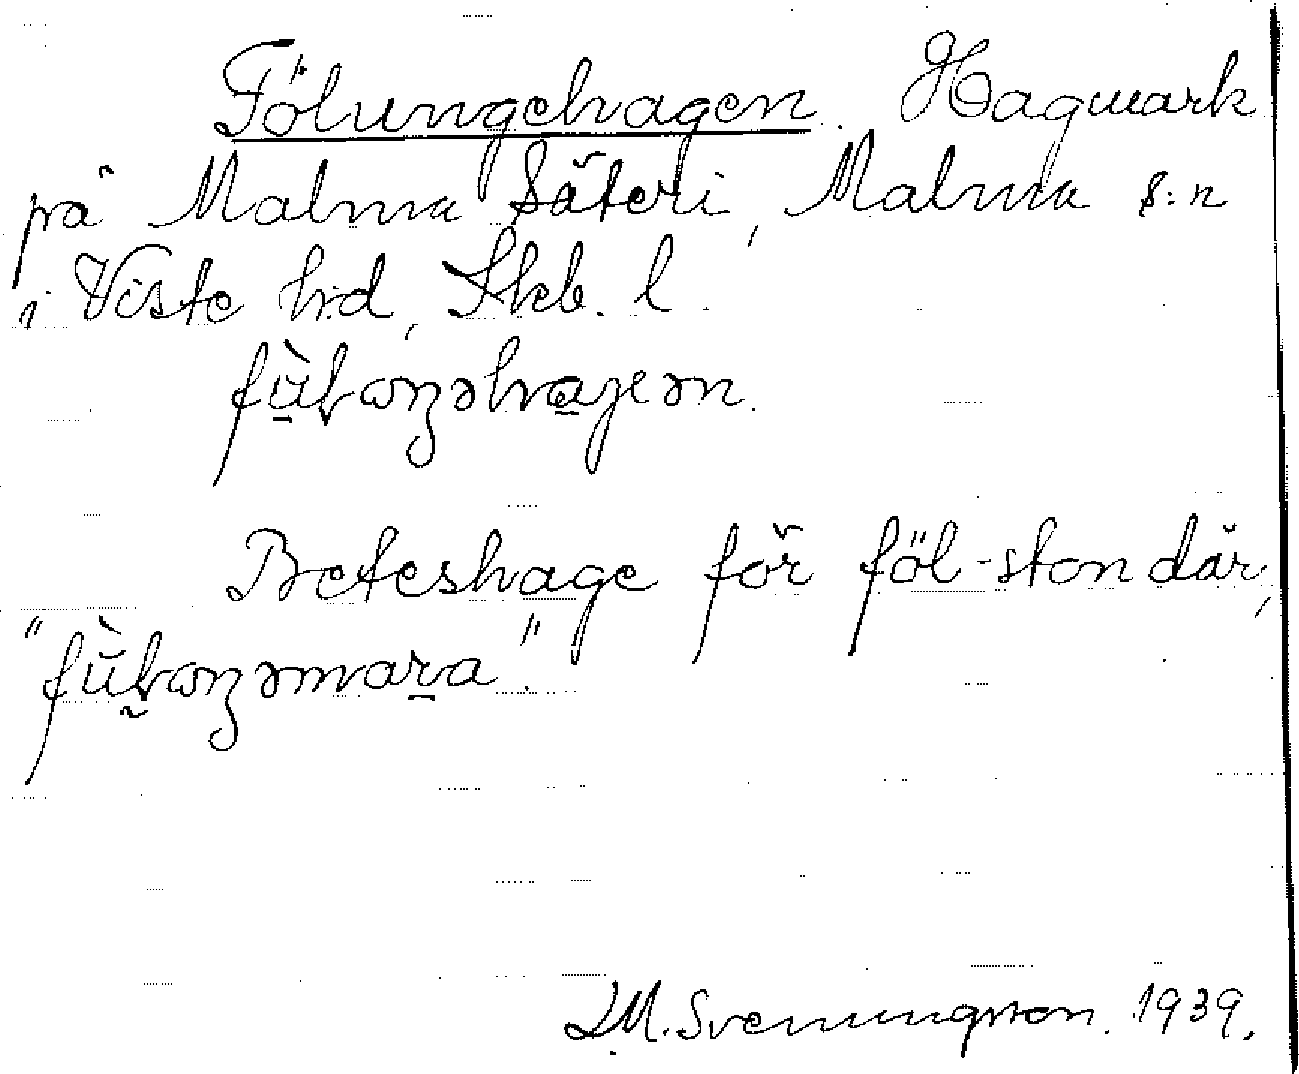 Fölungehagen. Hagmark
på Malma Säteri, Malma s:n
i Viste hd, Skb. l.
Beteshage för föl-ston där,
LM. Svenungsson. 1939.